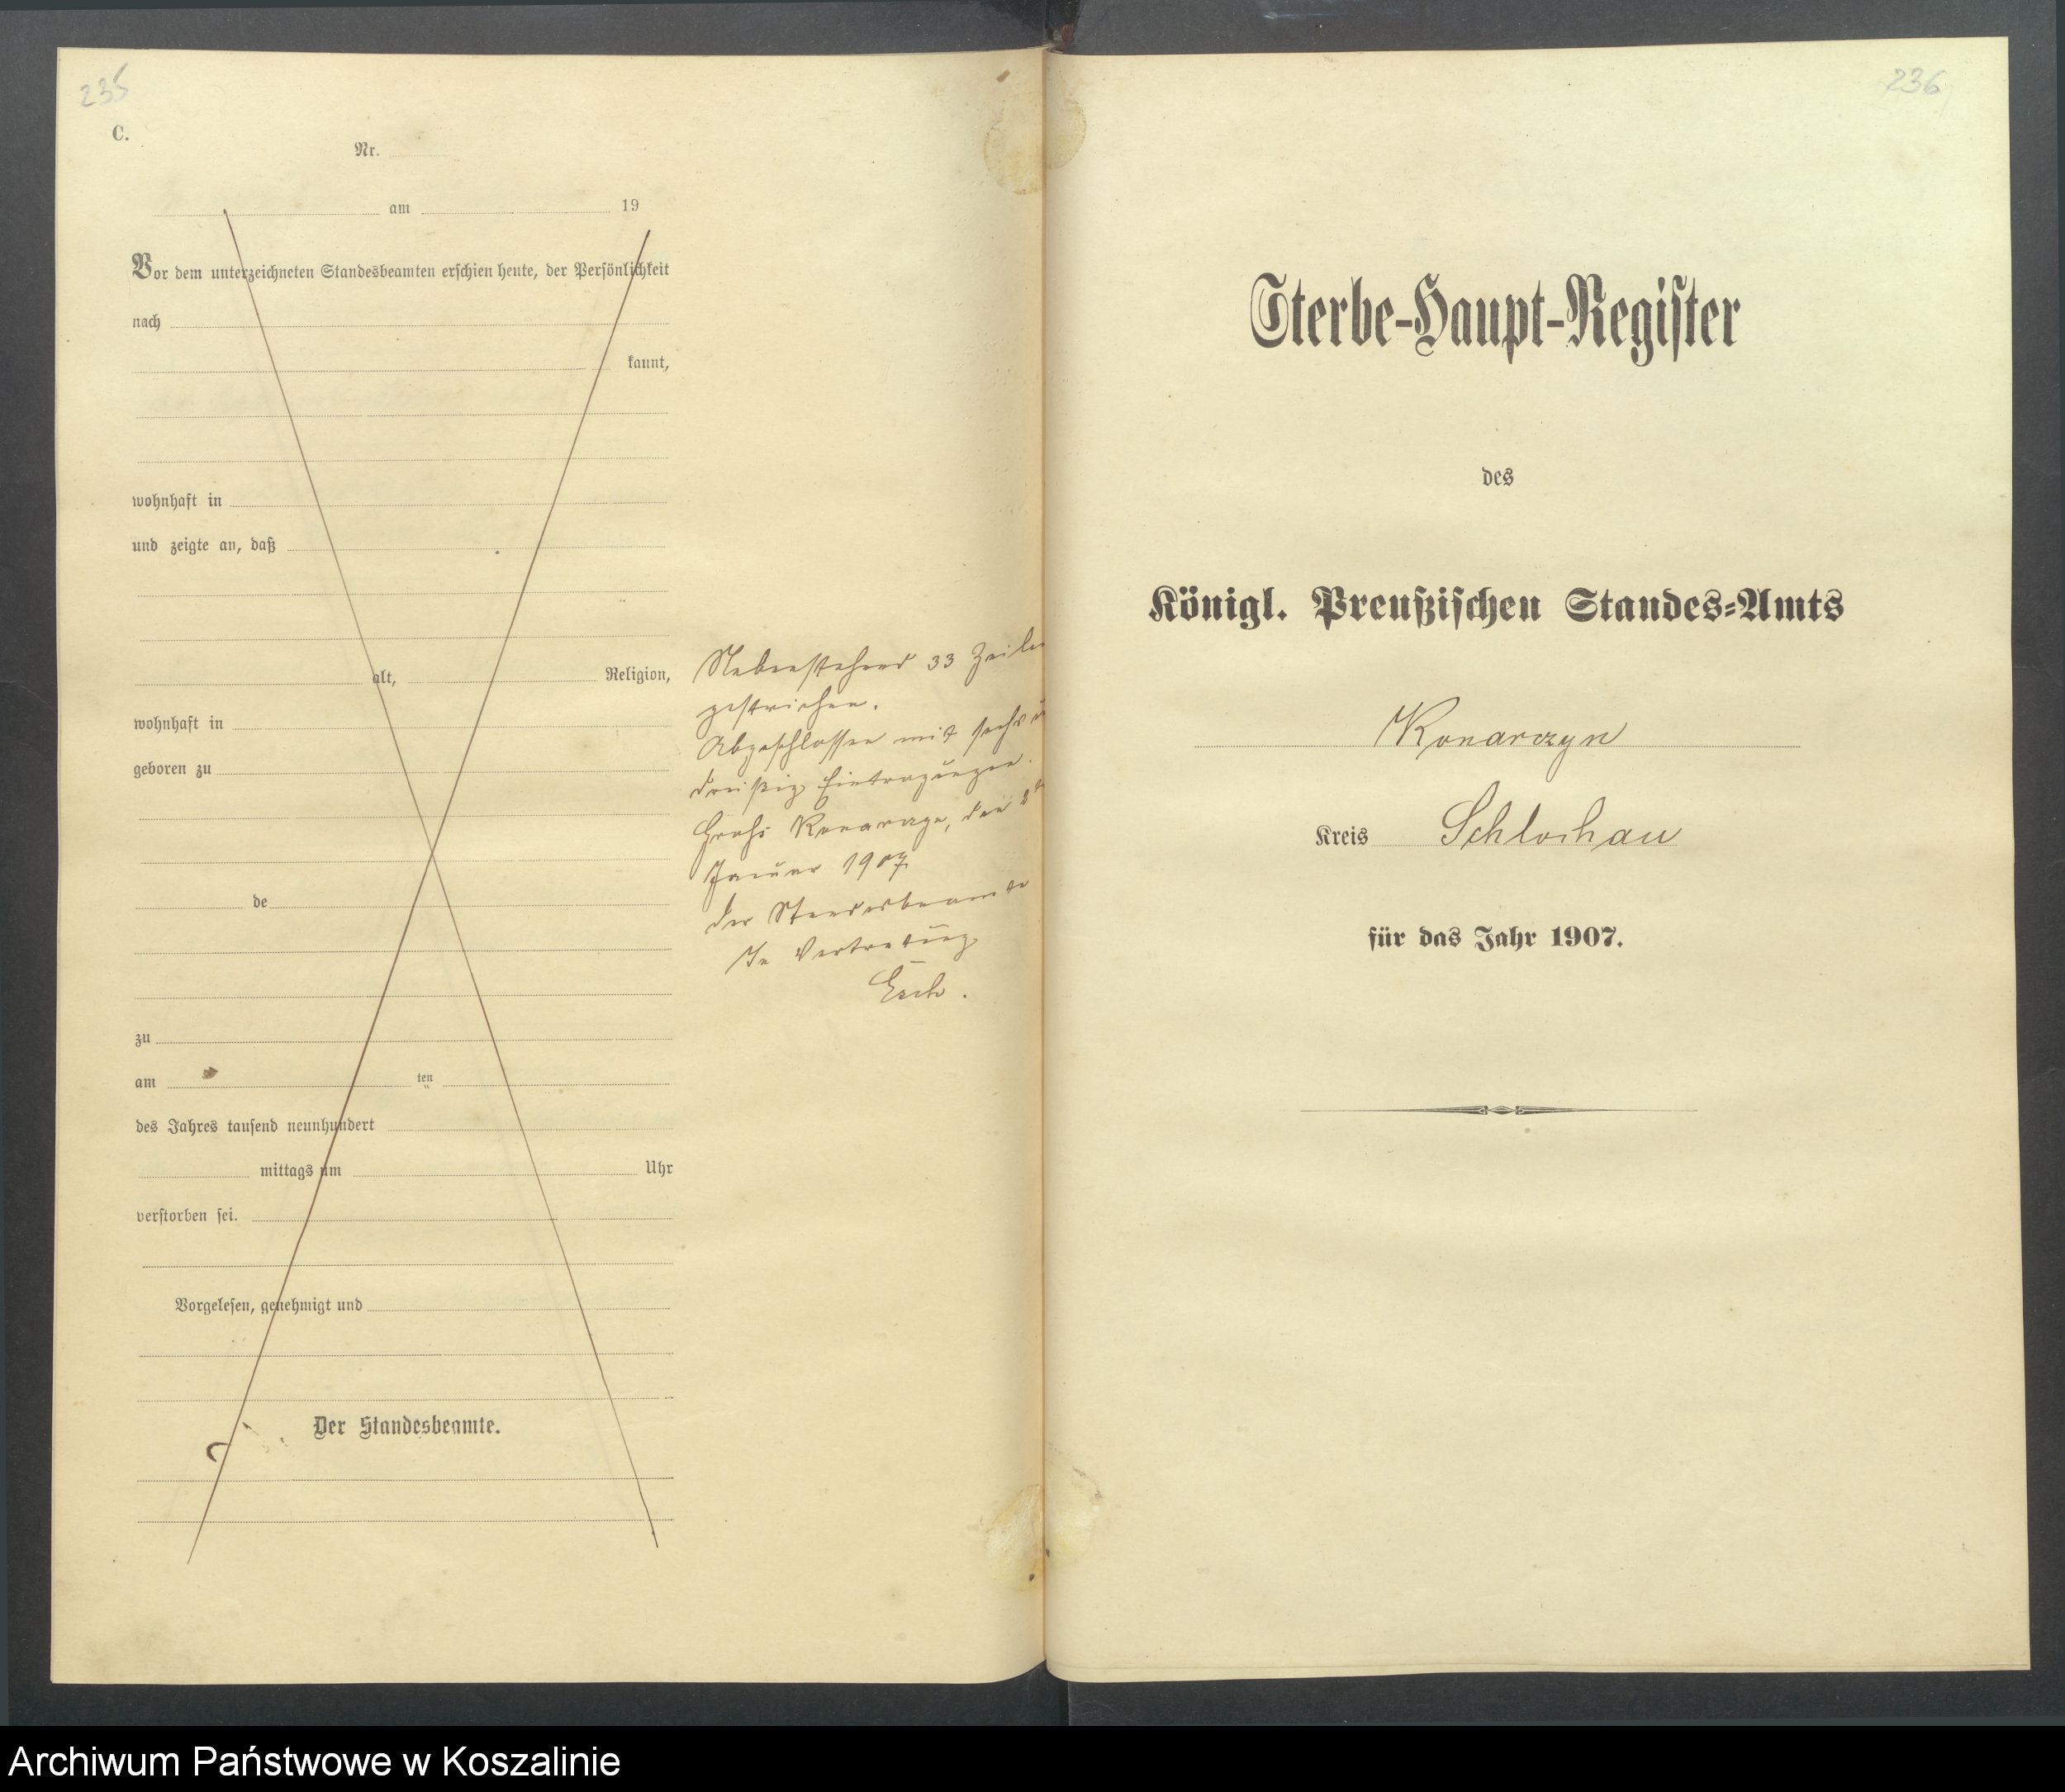 235
C.
Nr.
am 19
Vor dem unterzeichneten Standesbeamten erschien heute, der Persönlichkeit
nach
kannt,
wohnhaft in
und zeigte an, daß
alt, Religion,
wohnhaft in
geboren zu
de
zu
am ten
des Jahres tausend neunhundert
mittags um Uhr
verstorben sei.
Vorgelesen, genehmigt und
Der Standesbeamte.
Nebenstehend 33 Zeilen
gestrichen.
Abgeschlossen mit sechs u
dreißig Eintragungen.
Groß Konarczyn, den
Januar 1907
Der Standesbeamte
In Vertretung
236
Sterbe-Haupt-Register
des
Königl. Preußischen Standes-Amts
Konarczyn
Kreis Schlochau
für das Jahr 1907.
Archiwum Państwowe w Koszalinie